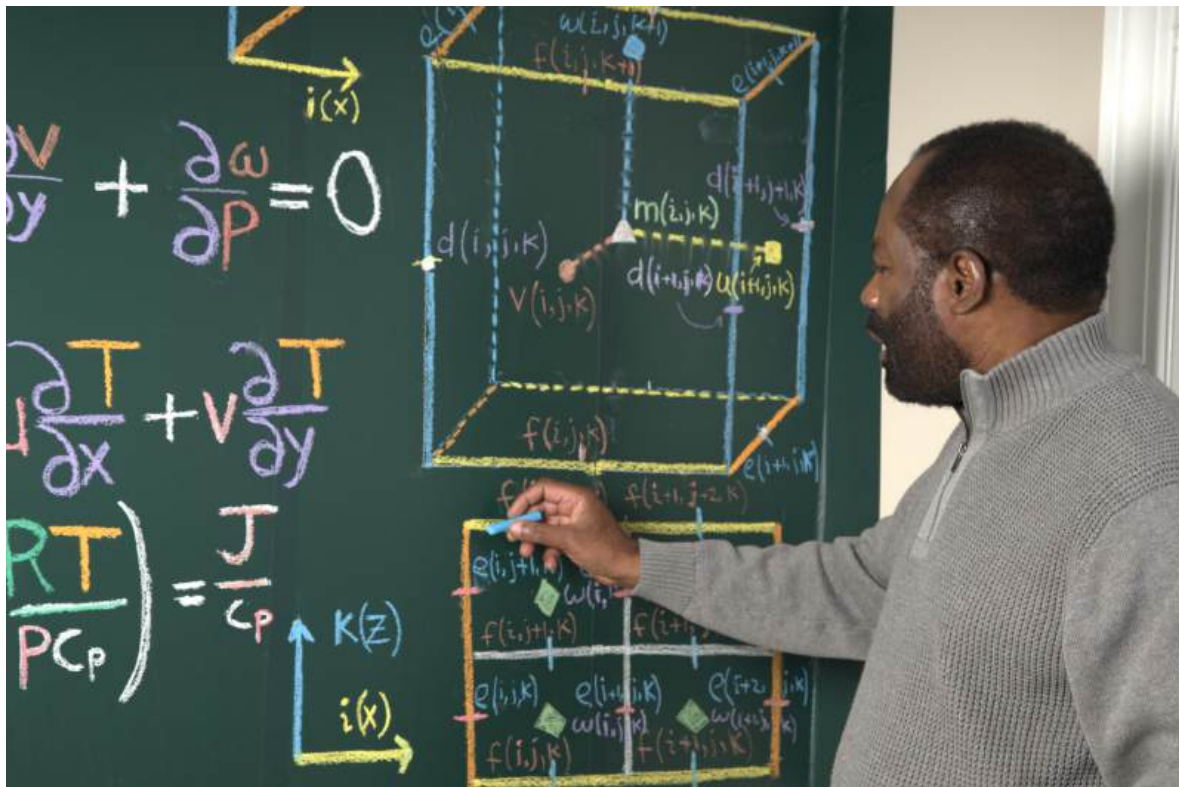 i(x)
∂V/∂y + ∂ω/∂P = 0
∂T/∂x + V ∂T/∂y
RT/PCp) = J/Cp
K(Z)
i(x)
ω(i,j,k+1)
f(i,j,k+1)
d(i+1,j+1,k)
m(i,j,k)
d(i,j,k)
d(i+1,j,k)
u(i+1,j,k)
V(i,j,k)
f(i,j,k)
e(i+1,j,k)
f(i+1,j+2,k)
e(i,j+1,k)
f(i,j+1,k)
e(i,j,k)
e(i+1,j,k)
e(i+2,j,k)
ω(i,j,k)
f(i,j,k)
f(i+1,j,k)